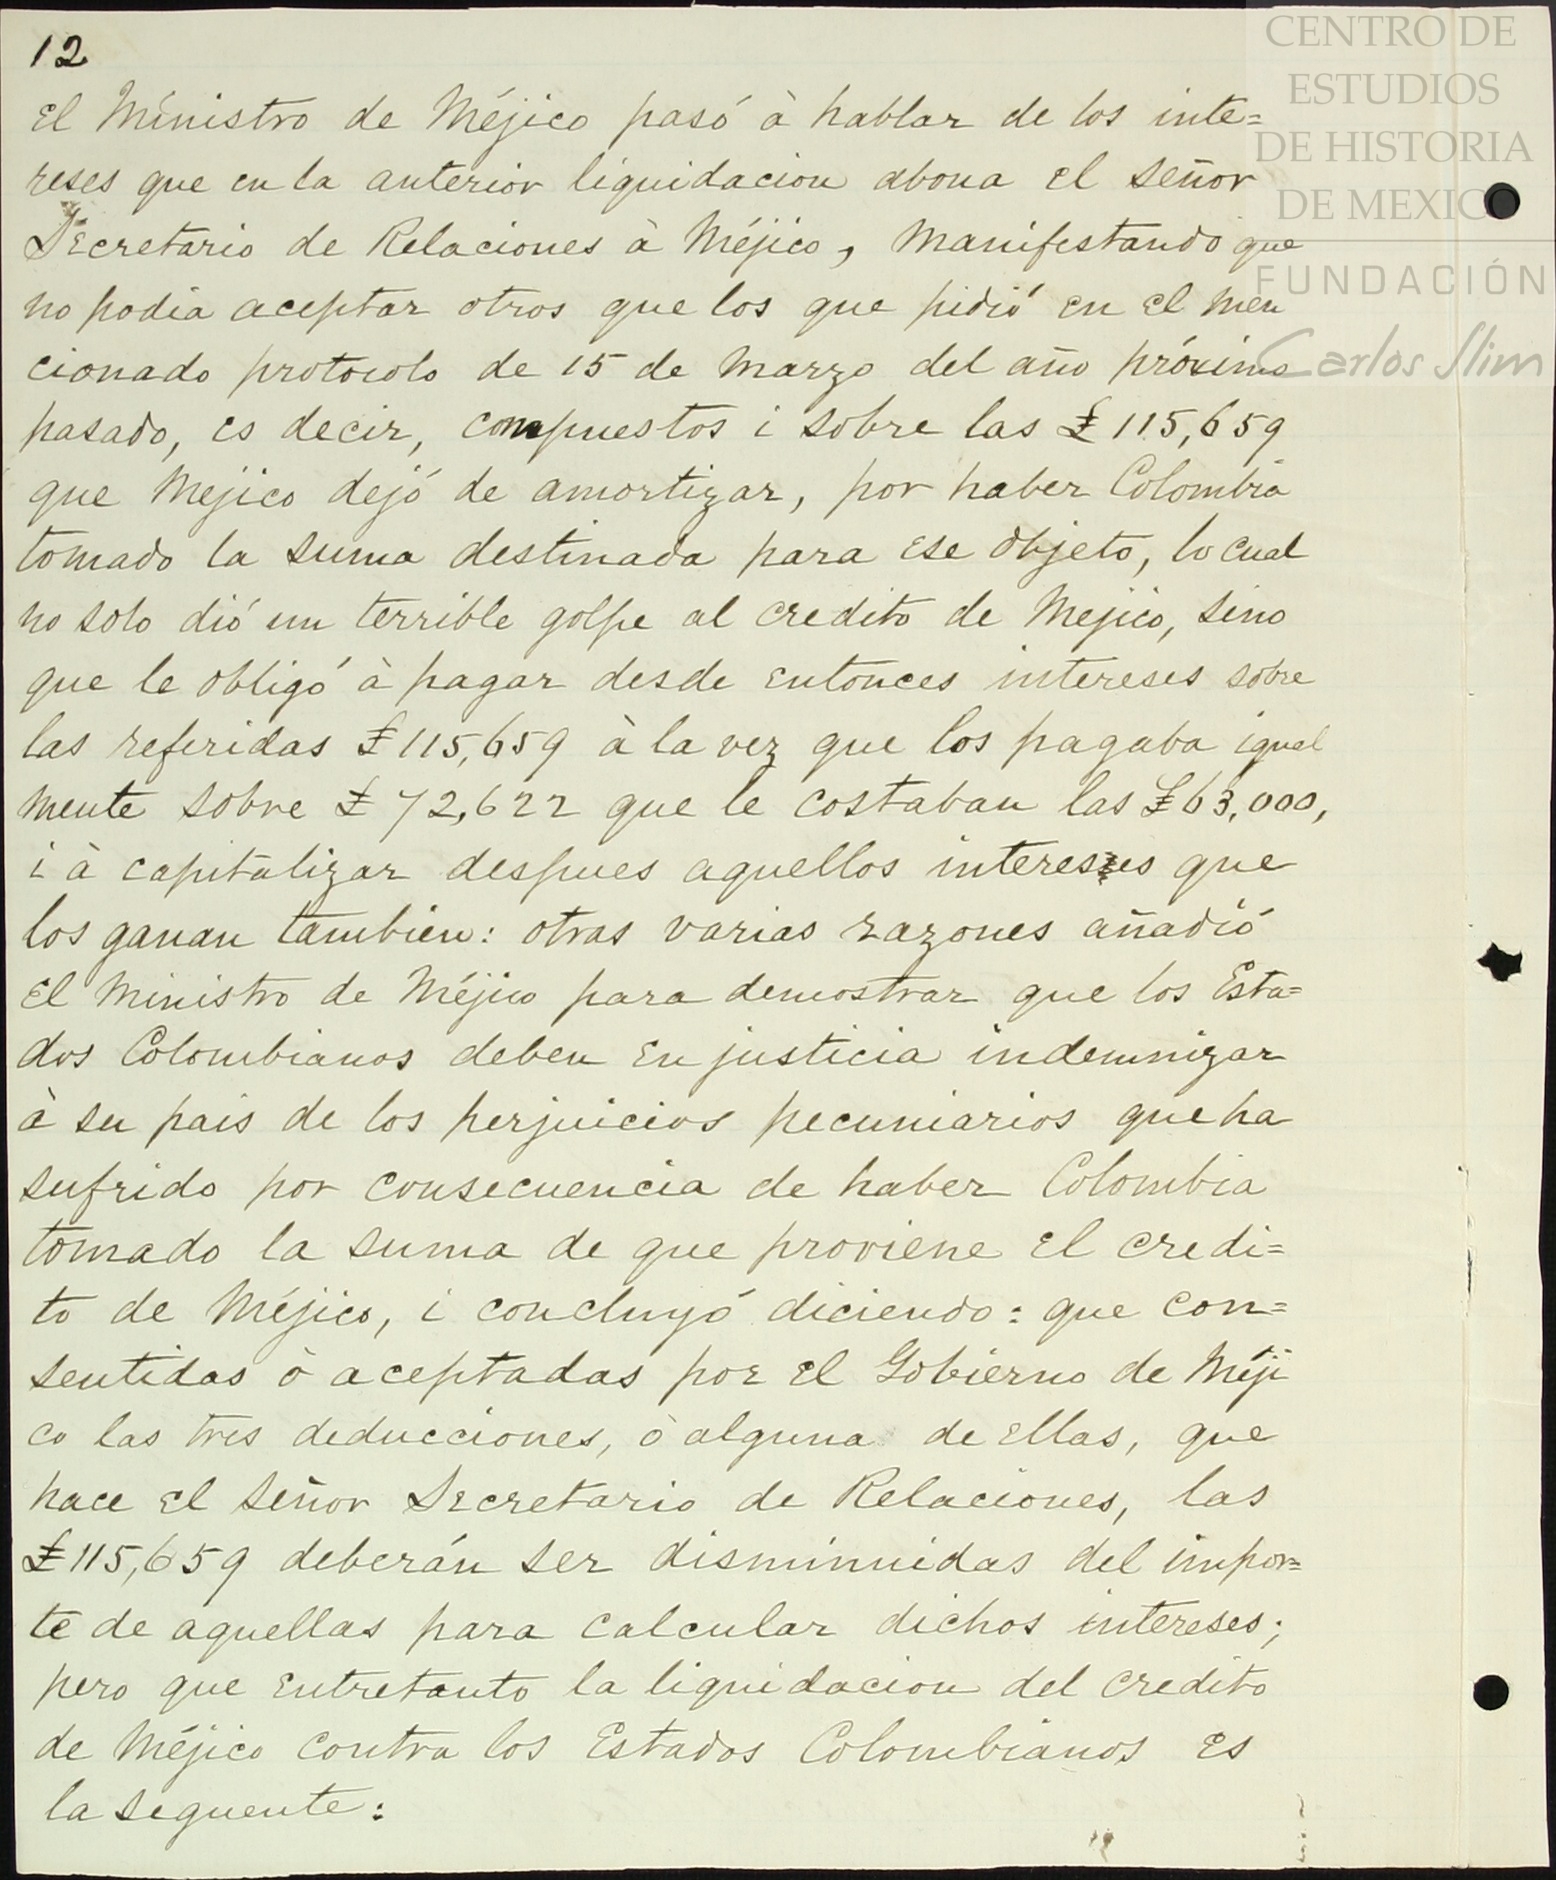 CENTRO DE
ESTUDIOS
DE HISTORIA
DE MEXICO
FUNDACIÓN
Carlos Slim
12
El Ministro de Méjico pasó à hablar de los inte=
reses que en la anterior liquidacion abona el señor
Secretario de Relaciones à Méjico, manifestando que
no podia aceptar otros que los que pidió en el men
cionado protocolo de 15 de Marzo del año próximo
pasado, es decir, compuestos i sobre las £ 115,659
que Mejico dejó de amortizar, por haber Colombia
tomado la suma destinada para ese objeto, lo cual
no solo dió un terrible golpe al credito de Mejico, sino
que le obligó à pagar desde entonces intereses sobre
las referidas £ 115,659 à la vez que los pagaba igual
mente sobre £ 72,622 que le costaban las £ 63,000,
i à capitalizar despues aquellos intereses que
los ganan tambien: otras varias razones añadió
el Ministro de Méjico para demostrar que los Esta=
dos Colombianos deben en justicia indemnizar
à su pais de los perjuicios pecuniarios que ha
sufrido por consecuencia de haber Colombia
tomado la suma de que proviene el credi=
to de Méjico, i concluyó diciendo: que con=
sentidas ò aceptadas por el Gobierno de Méji
co las tres deducciones, ò alguna de ellas, que
hace el señor Secretario de Relaciones, las
£ 115,659 deberán ser disminuidas del impor=
te de aquellas para calcular dichos intereses;
pero que entretanto la liquidacion del credito
de Méjico contra los Estados Colombianos es
la seguente: